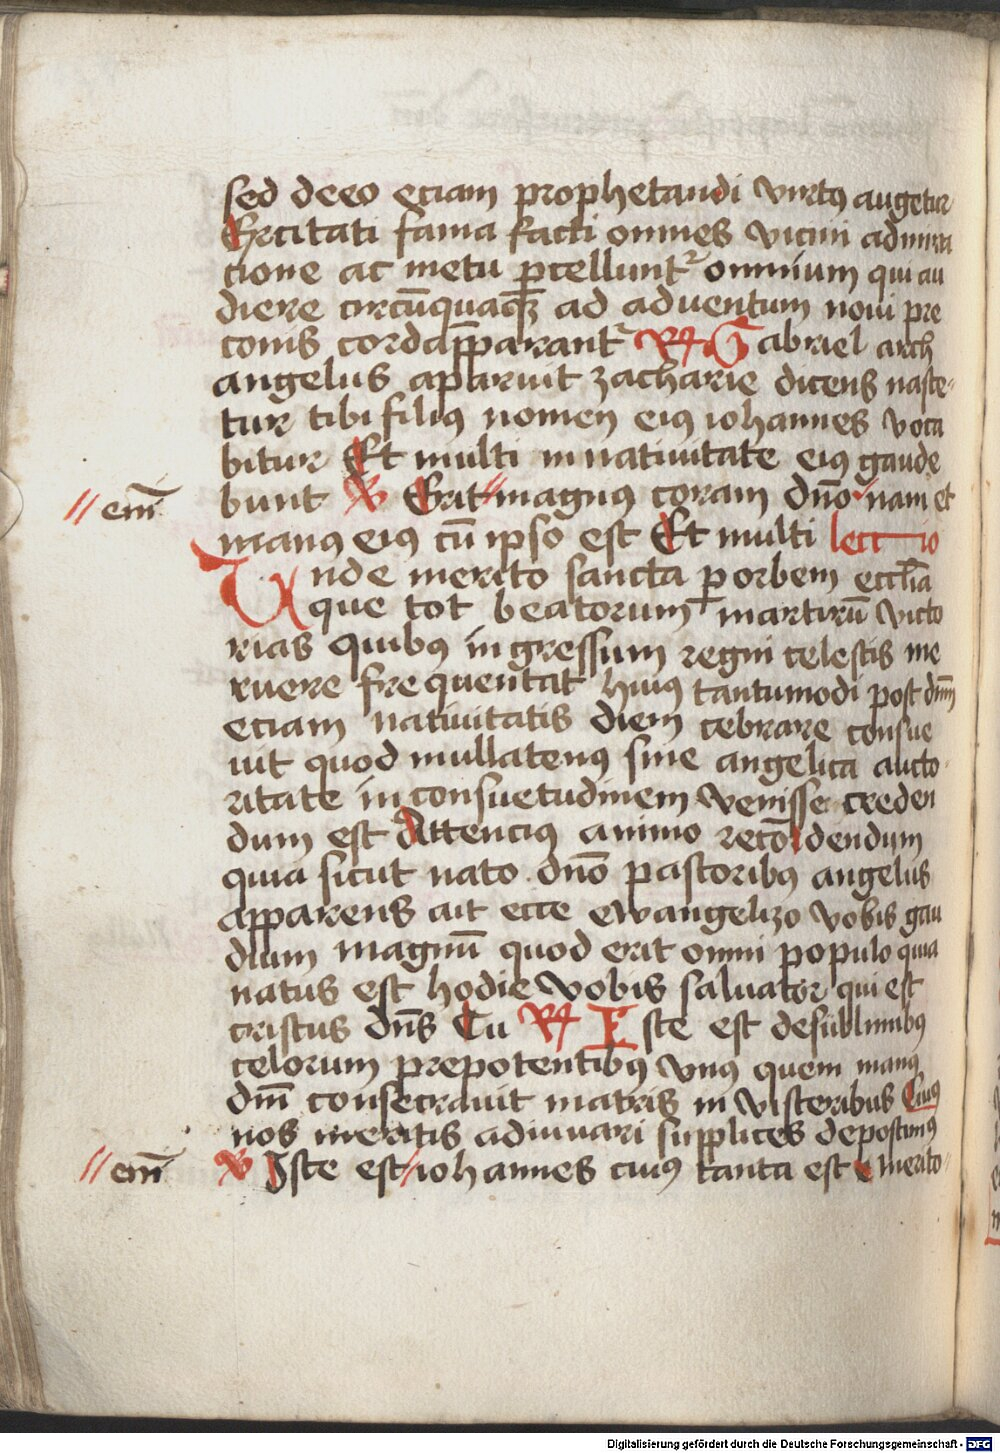 sed deeo eciam prophetandi virtꝰ augetur
Excitati fama facti omnes vicini admira
cione ac metu ꝑcelluntᷣ omnium qui au
diere circūquaqꝫ ad aduentum noui pre
conis corda p̄parantᷣ R⁊ Gabriel arch
angelus aparuit zacharie dicens nasce-
tur tibi filiꝰ nomen eiꝰ iohannes voca
bitur Et multi in natiuitate eiꝰ gaude
bunt ℣ Erit // magnꝰ coram dn̄o nam et
// em̄
manꝰ eiꝰ cū ipso est Et multi lectio
Unde merito sancta ꝑ orbem eccl̄ia
que tot beatorum martirū victo
rias quibꝰ ingressum regni celestis me
ruere frequentat huiꝰ tantumodi post dn̄m
eciam natiuitatis diem cebrare consue
uit quod mullatenꝰ sine angelica aucto-
ritate in consuetudinem venisse creden
dum est Attenciꝰ animo recō dendum
quia sicut nato dn̄o pastoribꝰ angelus
apparens ait ecce ewangelizo vobis gau
dium magnū quod erit omni populo quia
natus est hodie vobis saluator qui est
cristus dn̄s Cu R⁊ Iste est de sublimibꝰ
celorum prepotentibꝰ vnꝰ quem manꝰ
dn̄i consecrauit matris in visceribus Cuiꝰ
nos meritis adiuuari supplices deposcimꝰ
// em̄ ℣ Iste est // iohannes cuiꝰ tanta est merito-
Digitalisierung gefördert durch die Deutsche Forschungsgemeinschaft - DFG